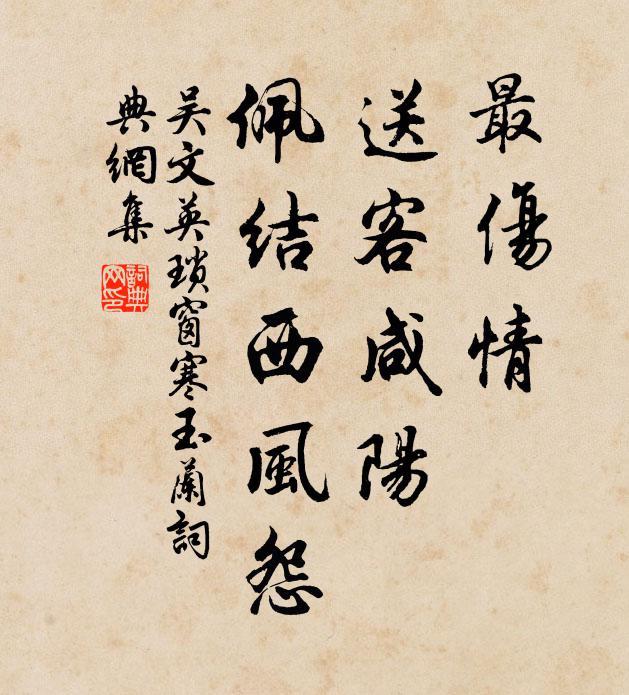 最傷情
送客咸陽
佩結西風怨
吴文英瑣窗寒玉蘭詞
典網集
詞典網印